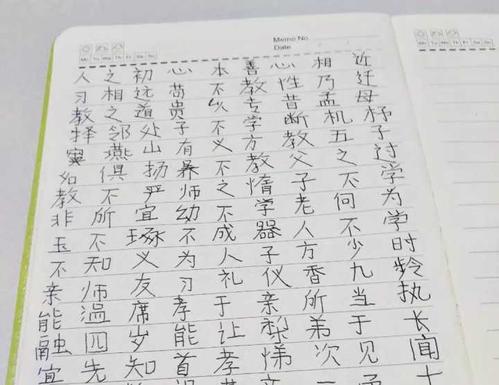 Memo No.
Date
Mo Tu We Th Fr Sa Su
人之初心本善心相近
习相远苟不教性乃迁
教之道贵以专昔孟母
择邻处子不学断机杼
窦燕山有义方教五子
名俱扬养不教父之过
教不严师之惰子不学
非所宜幼不学老何为
玉不琢不成器人不学
不知义为人子方少时
亲师友习礼仪香九龄
能温席孝于亲所当执
融四岁能让梨弟于长
宜先知首孝悌次见闻